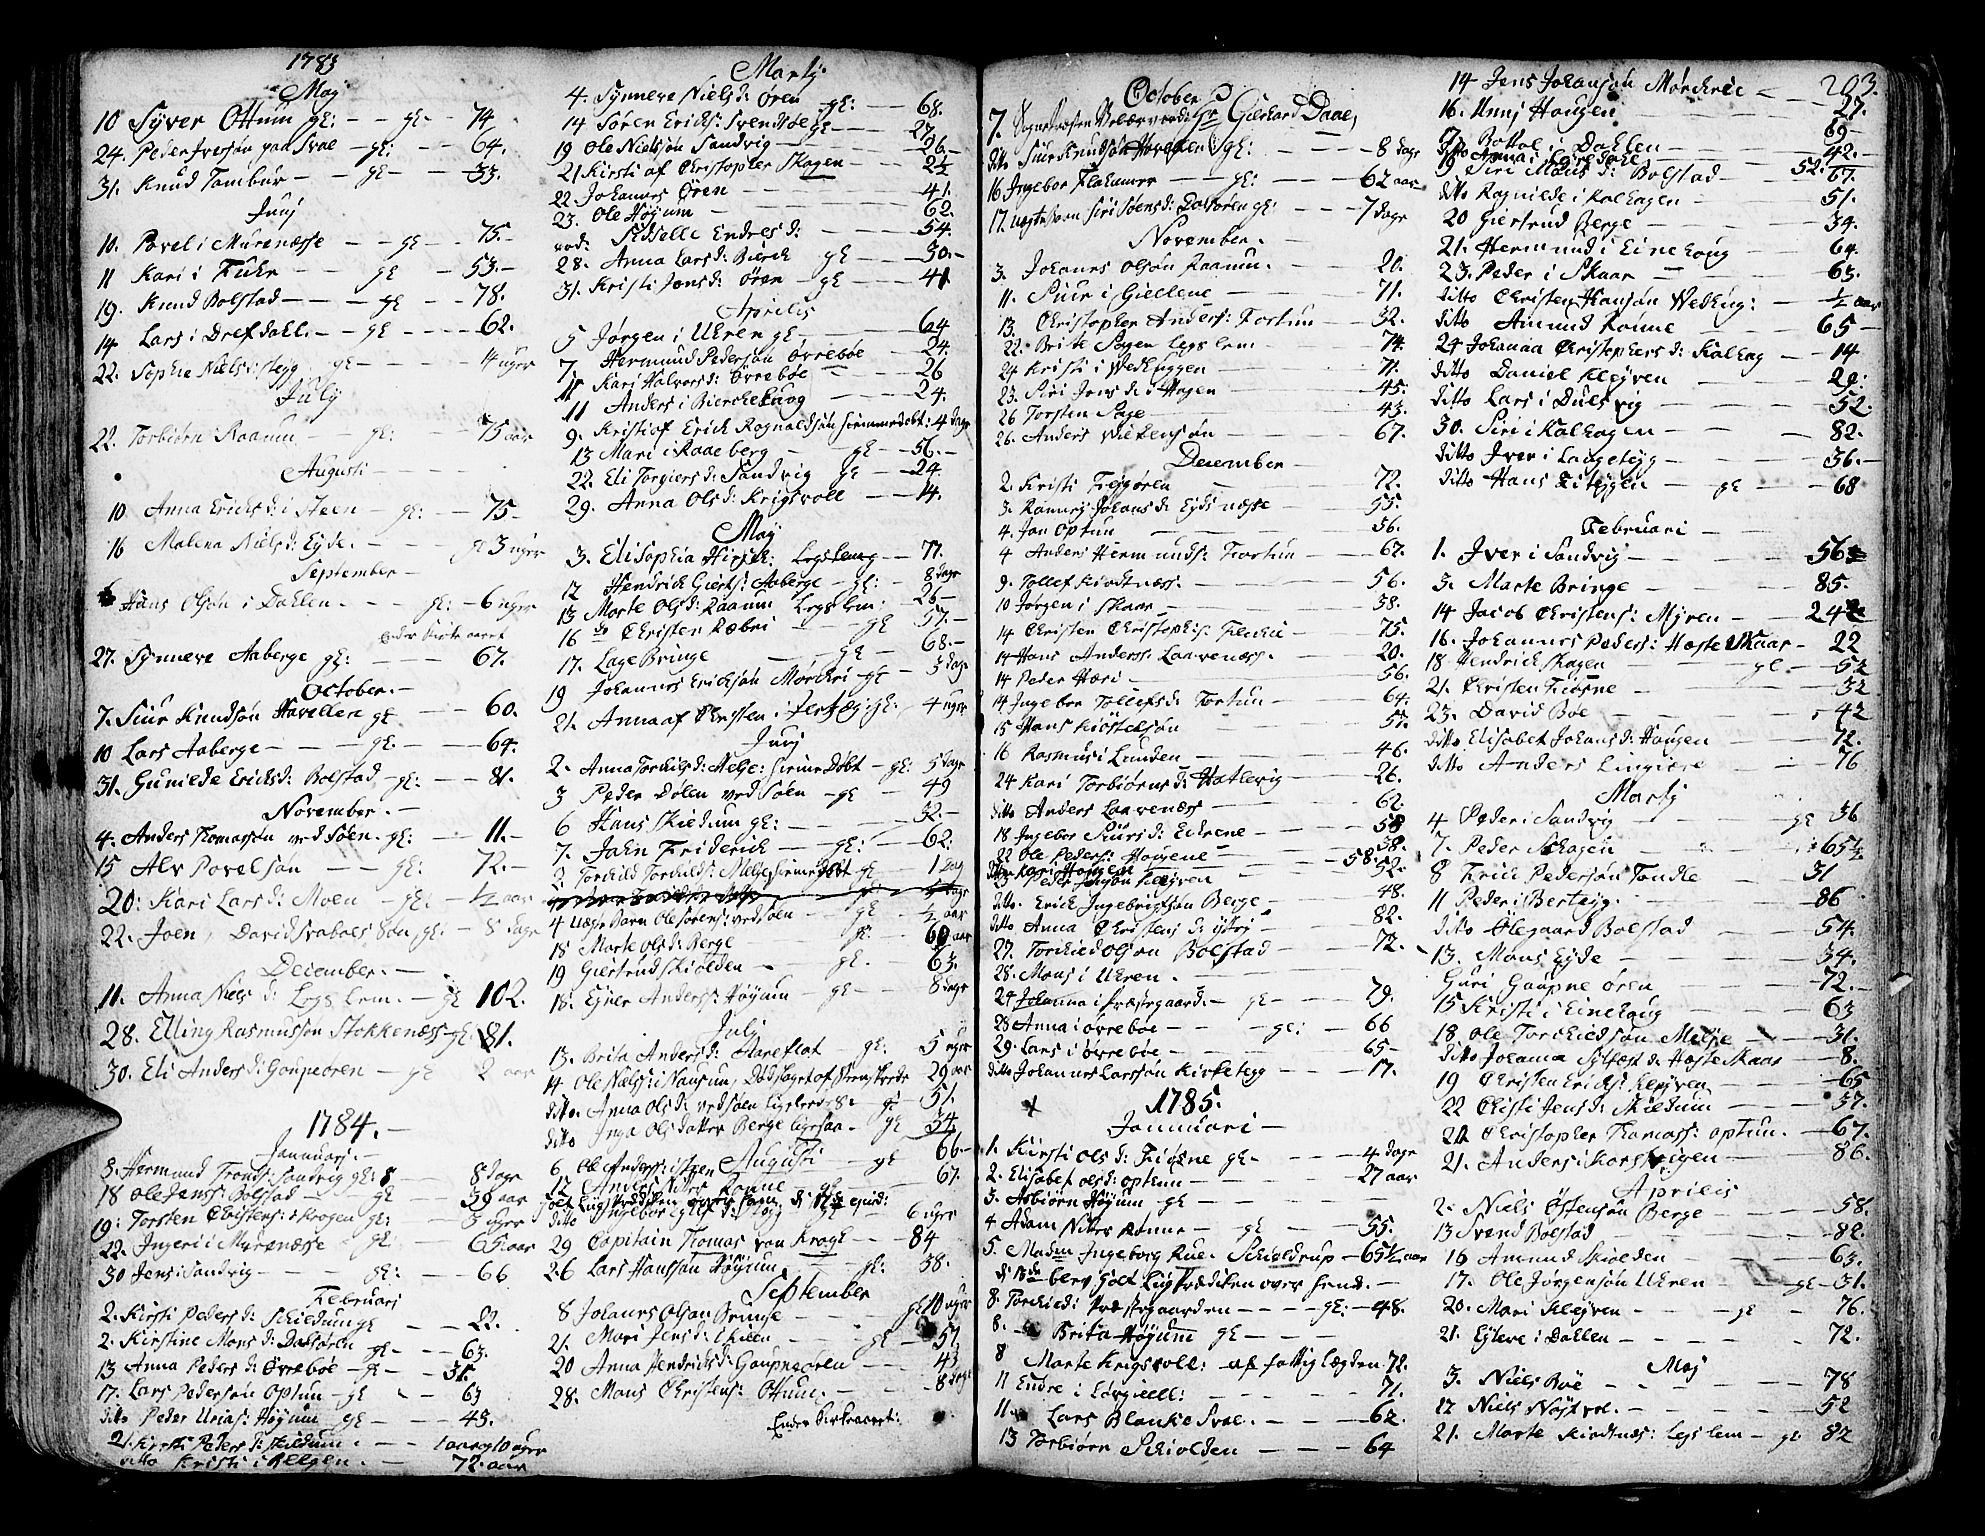 1783
May
10 Syver Ottum gl: - - gl - - 74
24. Peder Iversøn paa Svae - gl: - - 64.
31. Knud Tambur - - gl - - 33.
Junj
10. Povel i Murenæsse - - gl - - 75.-
11 Kari i Fuhr - - gl - 53.-
19. Knud Bolstad - - - gl - - 78.
14 Lars i Drefdahl. - - gl - - - - 62.
22. Sophie Niels: gl - - - 4 uger
July
22. Torbiørn Raarum - - gl: - - 75 aar
Augusti
10 Anna Erichsd: i Steen - gl: - 75 -
16 Malena Nielsd: Eyde. - gl 3 uger
September -
Hans Olsøn i Dahlen. - - - gl: - 6 uger
Ender Kirke aaret
27. Synneve Aaberge gl: - - - 67.
October. -
7. Siur Knudsøn Havellen gl - - 60.
10 Lars Aaberge - - - gl: - - - 64.
31. Gunilde Erichsd: Bolstad - gl: - - - 81.
November. -
4. Anders Thomassøn ved Søen. - gl: - - 11.-
15 Alv Povelsøn - - gl: - - 72.-
20: Kari Larsd: Moen - gl: - - ½ aar
22. Joen, David Svaboes Søn gl: - 8 dage
December. -
11. Anna Nielsd: Legs Lem. - gl 102.
28. Elling Rasmussøn Stokkenæss - gl. 81.
30. Eli Andersd: Goupneøren - gl 2 aar
1784. -
Januari. -
8. Hermund Tronds: Sandvig gl: 8 dage
18 Ole Jens: Bolstad - - gl - - 39 aar
19: Torsten Christens: Krogen gl: - - 3 uger
22. Ingeri i Myrenæsse - gl: - - 65. aar
30 Jens i Sandvig - - - gl: - - - 66
Februarj
2. Kirsti Pedersd: Skildum gl - - 22.
2. Kirstine Monsd: Dalsøren gl - - 63.
13 Anna Pedersd: Øvrebøe - gl - 31.
17. Lars Pedersøn Optun - gl - - 63
ditto Peder Urias: Høyum gl - - - 43.
21. Kirsti Pedersd: Skildum. - - - 1 aar og 10 uger
ditto Kristi i Bergen. - - - 72. aar
Martj.
4. Synneve Nielsd: Øren - gl: - - 68.
14 Søren Erichs: Svendsøe gl - - - 27.
19 Ole Nielsøn Sandvig - - - 26 -
21 Kirsti af Christopher Skagen - - 2½
22. Johannes Øren - - - - 41.
23. Ole Høyum - - - - 62.
eod: Sidselle Endresd: - - - 54.
28. Anna Larsd: Bierk gl - - 30.-
31. Kristi Jonsd: Øren - gl - - 41
Aprilis
5 Jørgen i Uhren gl - - - - 64
7. Hermund Pedersøn Øvrebøe - - 24.
11 Kari Halvorsd: Øvrebøe - - 26
11 Anders i Bierckehaug - - - 24.
9. Kristi af Erick Rognaldsøn hjemmedøbt: 4 dage
13 Mari i Raaeberg - - gl - 56. -
22. Eli Torgiersd: Sandvig gl - - 24
29. Anna Olsd: Krigsvoll - - - 14.
May
3. Eli Sophia Hirsch: Legslemg - - 77.
12 Hendrich Gierts: Aaberge - gl: - 8 dage
13 Marte Olsd: Raarum Legs Lem. - 26 -
16 do Christen Ræbri - gl - 57. -
17. Lage Bringe - - gl - - 68. -
19 Johannes Ericksøn Mørkri - gl - - 3 dage
21. Anna af Christen i gl: - 4 uger
Junj
2. Anna Torkildsd: Melje: hjemmedøbt - gl: 5 dage
3 Peder Dalen ved Søen - gl - 49
6 Hans Skieldum gl: - - - 32. -
7. John Friderich - - gl: - - 62.
Torchild Torchilds: Melje, hjemmedøbt gl 1 dag
4 Uægte Barn Ole Sørens: ved Søen - gl - - ½ aar
18 Marte Olsd: Berge gl: 60 aar
19 Giertrud Skiølden - - gl. - 63.
18. Eyner Anders: Høyum - gl - - - 8 dage
July
13. Brita Andersd: Hareflat - gl: 5 uger
14 Ole Niels: i Nansum, Død slaget af Steenskrede 29 aar
dito. Anna Olsd: ved Søen ligeledes - gl - 51.
dito Inga Olsdatter Berge ligesaa. - gl 34.
6 Ole Anders: i Steen Augusti - gl 66.-
12 Anders Nitter Rønne gl 67.
holt Liigprædiken over ham d: 17de ejusd:
ditto Ingebor - gl - - 6 uger
29 Capitain Thomas von Kragh - - 84
26 Lars Hanssøn Høyum. - gl: - 38.
September
8 Johannes Olsøn Bringe - - gl 10 uger
21. Mari Jensd: - - gl - - 51.
20 Anna Hendrichsd: Goupneøren - - 43.
28. Mons Christens: Ottum. - - - - 8 dage
Ender Kirke aaret:
October
7. Sogne Hr Gierhard Daae,
ditto Siur Knudsøn Havellen gl: - - 8 dage
16 Ingebor Flahamer - - gl: - - 62 aar
17. uægte barn Siri Søensd: Dalsøren gl: - - - 7 dage
November. -
3. Johannes Olsøn Raarum. - - 20.
11. Siur i Giellene - - - 71.
13. Christopher Anders: Fortun - - 32.
22. Brite Sagen Legs Lem - - - 74.
24 Kristi i Vedhuggen - - 71.
23. Siri Jensd: Hagen - - - 45.
26 Torsten Sage - - - 43.
26. Anders Wickensøn - - - 67.
December -
2. Kristi Feigøren - - - 72.
3. Ranneij Johansd: Eyds næsse - - 55.
4. Jon Optun - - - 56.
4 Anders Hermunds: Fortun - - - 67.
9. Tollef Kivdtnæss. - - - 56.
10 Jørgen i Skaar - - - 58.
14 Christen Christophs: - - 75.
14 Hans Anderss: Laavenæs. - - - 20.
14 Peder Høri - - - 56.
14 Ingebor Tollefsd: Fortun - - - 64.
15 Hans Kiøstelsøn - - - 57.
16 Rasmus i Lunden - - - 46.
24 Kari Torbiørnsd: Hatlevig - - - 26.
ditto Anders Laavenæs - - - 62.
18 Ingebor Siursd: Eikrene - - - 58
22 Ole Peders: Hougene - - - 38.
ditto Kari Hougen - - - 58.
23 Peder Jensøn Kleyven - - 52.
ditto. Erick Ingebrigtsøn Berge - - - 48.
ditto Anna Christensd: - - - 82.
27. Torchied Olsøn Bolstad - - 72.
28. Mons i Uhren. - -
24 Johanna i Præstgaard: - gl - - - 79.
28 Anna i Øvrebøe - - - gl: - 66
29. Lars i Øvrebøe - - - - 65 -
ditto Johannes Larssøn Kirketeyg - - - 17.
1785.
Januari -
1. Kirsti Olsd: Fiøsne gl - - 4 dage
2. Elisabet Olsd: Optun - - - 27 aar
3. Asbiørn Høyum gl - - -
4 Adam Nitter Rønne - - gl - - 55.
5. Madm Ingeborg Schieldrup - 65½ aar
d: 13de berg: holt Liig Prædiken over hende. -
8. Torchied: Præstgaarden - - gl: - 48.
8. - Brita Høyum gl - - -
8 Marte Krigsvoll: af fattig lægden 72.
11 Endre i Lørgieell: - - - 71.
11. Lars Blanke Svae. - - - 62.
13 Torbiørn Schiolden - - - 64
14 Jens Johansøn Mørckrie - 203.
16. Unnj Hougen - - - 27.
17. Bottol i Dahlen - - - 69 -
ditto Anna i - - 42. -
9. Siri Monsd: Bolstad - - 52. 67.
ditto Ragnilde i Kalhagen - - - 51.
20 Giertrud Berge - - - 34.
21. Hermund i Einehoug - - 64.
23. Peder i Skaar - - - 63.
ditto Christen Hansøn Vedhug: - - ½ aar
ditto Amund Rønne - - - 65 -
24 Johanna Christophersd: Kalhag - - 14
ditto Daniel Kleyven - - - 29.
ditto Lars i Dulsvig - - - 52.
30. Siri i Kalhagen - - - 82.
ditto Iver i Langeteyg - - - 36. -
ditto Hans Eiteygen - - gl - - 68
Februari -
1. Iver i Sandvig - - - 56
3. Marte Bringe - - - 85.
14 Jacob Christens: Myren - - - 24
16. Johannes Peders: Hæste Skaar - 22
18 Hendrich Skagen - - gl - - 52
21. Christen Fiøsne - - - 32
23. David Boe - - - 42
ditto Elisabet Johansd: Hougen - - 72.
ditto Anders - - - 76
Martj
4 Peder i Sandvig - - - gl 36
7. Peder Skagen - - - 65½
8 Erick Pedersøn Tandle - - 31
11 Peder i Berteyg. - - - 86
ditto Ølegaard Bolstad - - - 54.
13. Mons Eyde - - - 34.
Guri Goupne øren - - - 72. -
15 Kristi i Einehoug - - 63
18 Ole Torchiedsøn Melje - - - 31.
ditto Johanna d: Hæste Skaar - - 8.
19 Christen Erichs: Kleyven - - 65
22 Christi Jensd: Skieldum - - - 57.
20 Christopher Thomass: Optun. - - 67.
21. Anders i Korsteigen - - - 86.
Aprilis
2. Niels Østensøn Berge - - - 58.
13 Svend Bolstad - - - 82.
16 Amund Skiolden - - - 63.
17. Ole Jørgensøn Uhren - - gl - 31.
20. Mari Kleyven - - - gl - - 76.
21. Eyleve i Dahlen - - - - 72.
Maj
3. Niels Boe - - - 78
12 Niels Nøstvol. - - - 52
21. Marte Kivdtnæs: Legs Lem - gl: 82